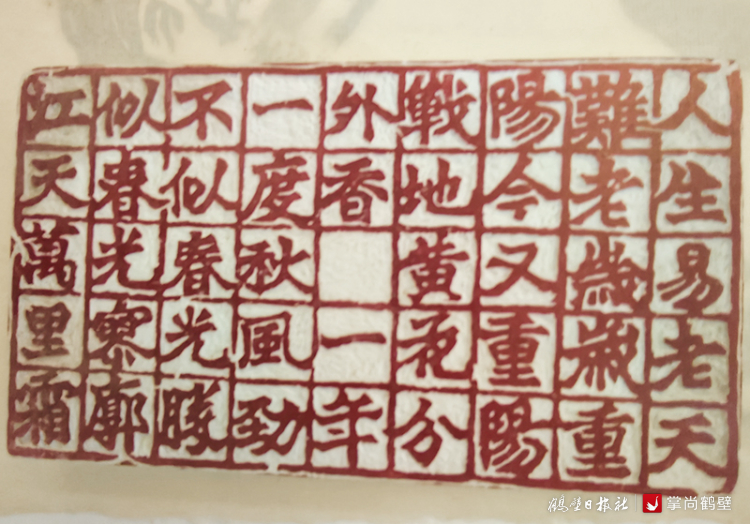 人生易老天
難老歲歲重
陽今又重陽
戰地黃花分
外香 一年
一度秋風勁
不似春光勝
似春光寥廓
江天萬里霜
鹤壁日报社 掌尚鹤壁